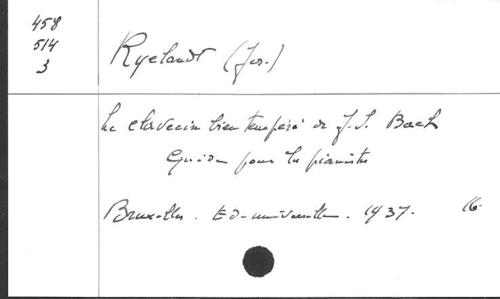 458
514
3
Ryelandt (Jos.)
Le clavecin bien tempéré de J. S. Bach
Guide pour les pianistes
Bruxelles. Ed. universelle. 1937. 16.